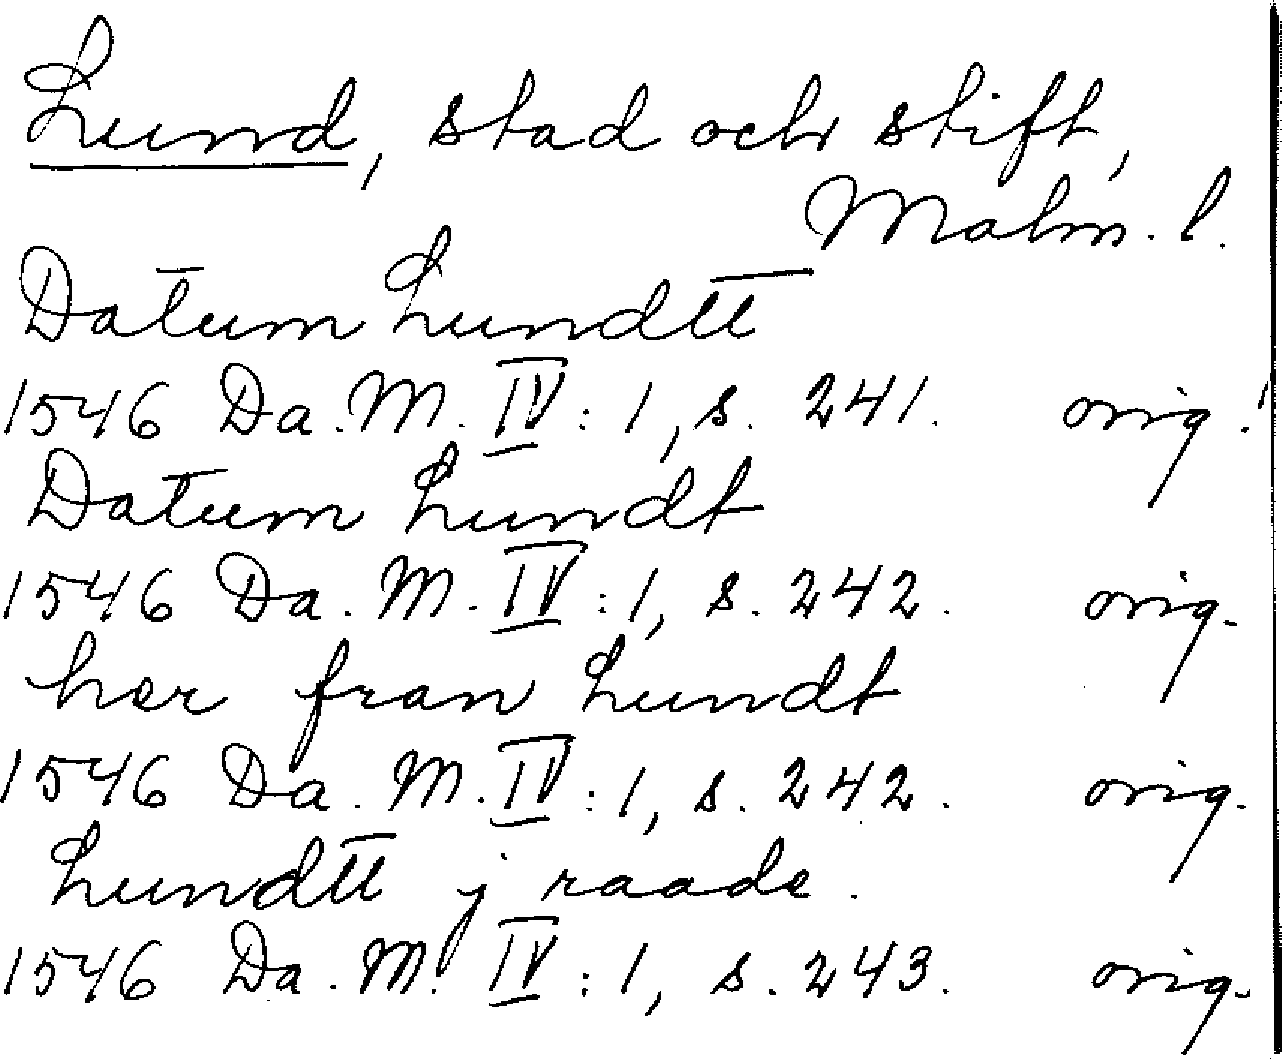 Lund, stad och stift,
Malm. l.
Datum Lundtt
1546 Da. M. IV: 1, s. 241. orig.
Datum Lundt
1546 Da. M. IV: 1, s. 242. orig.
her fran Lundt
1546 Da. M. IV: 1, s. 242. orig.
Lundtt j raade.
1546 Da. M. IV: 1, s. 243. orig.